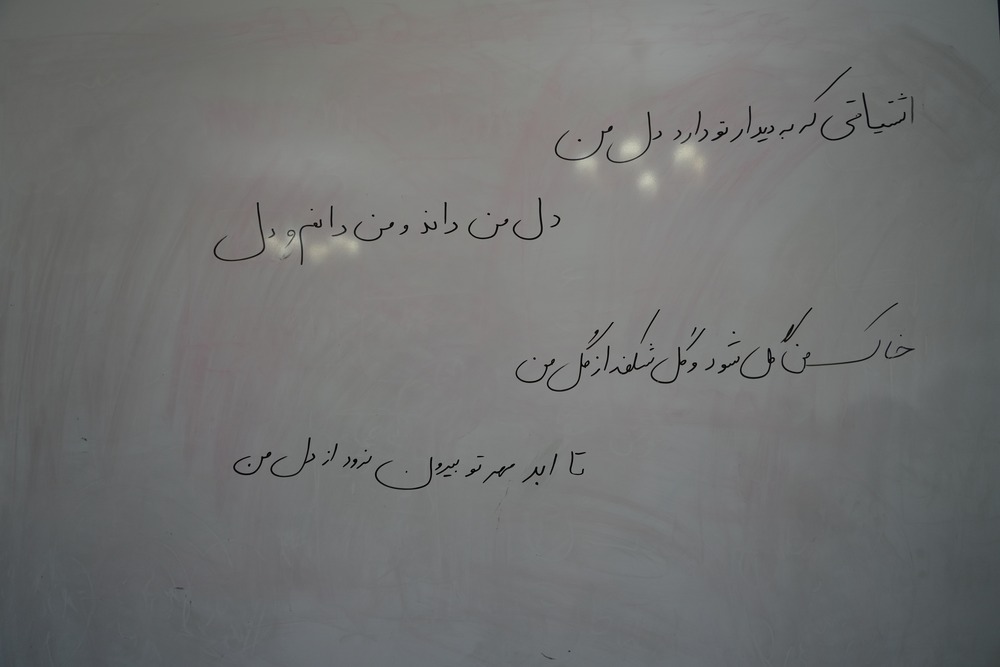 اشتیاقی که به دیدار تو دارد دل من
دل من داند و من دانم و دل
خاک من گل شود و گل شکفد از گل من
تا ابد مهر تو بیرون نرود از دل من